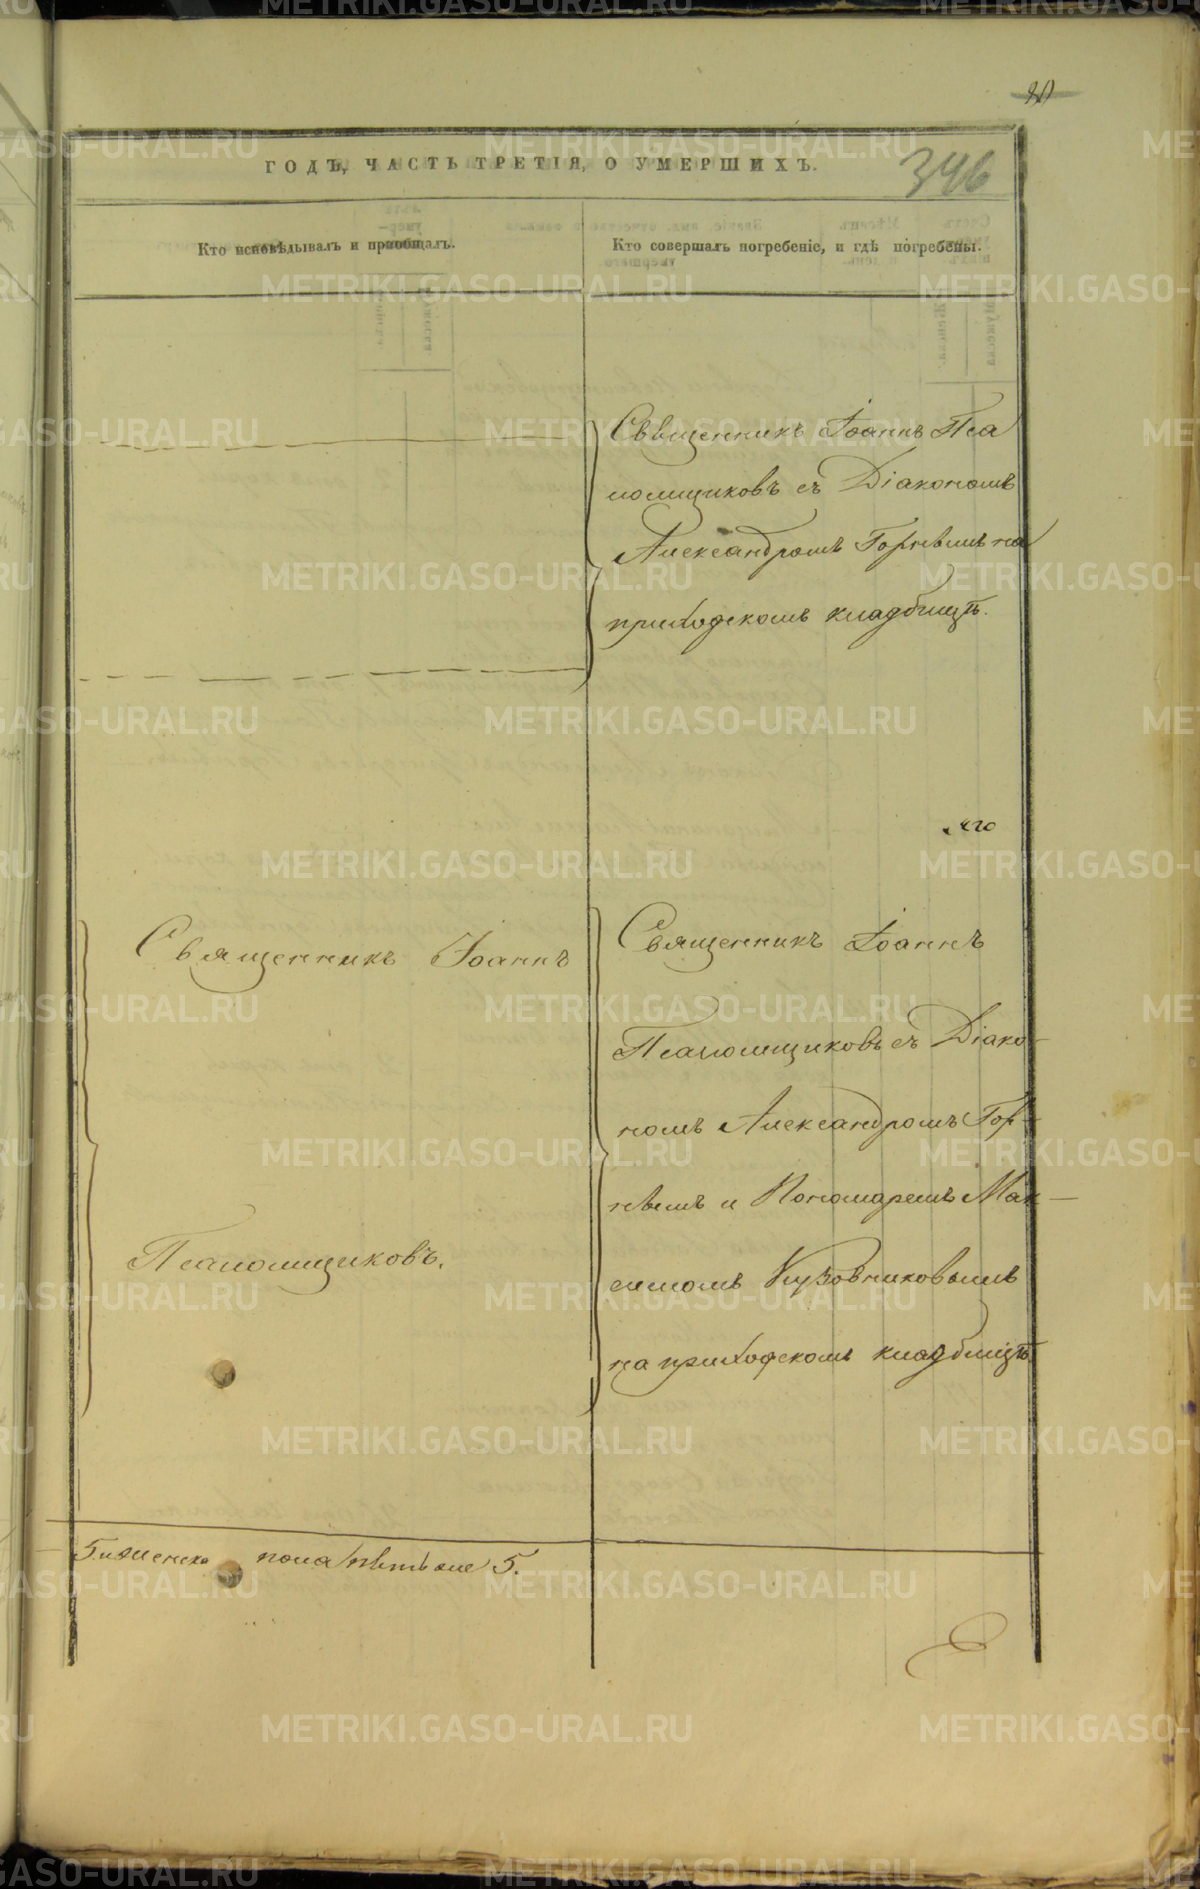 ГОДЪ, ЧАСТЬ ТРЕТІЯ, О УМЕРШИХЪ.
346
Кто исповѣдывалъ и пріобщалъ.
Кто совершалъ погребеніе, и гдѣ погребены.
Священникъ Іоаннъ Пса
ломщиковъ съ Діакономъ
Александромъ Горнѣвымъ на
приходскомъ кладбищѣ.
Священникъ Іоаннъ
Псаломщиковъ.
Священникъ Іоаннъ
Псаломщиковъ съ Діако-
номъ Александромъ Гор-
нѣвымъ и Пономаремъ Мак-
симомъ Кузовниковымъ
на приходскомъ кладбищѣ.
5. и женска пола пять 5.
METRIKI.GASO-URAL.RU